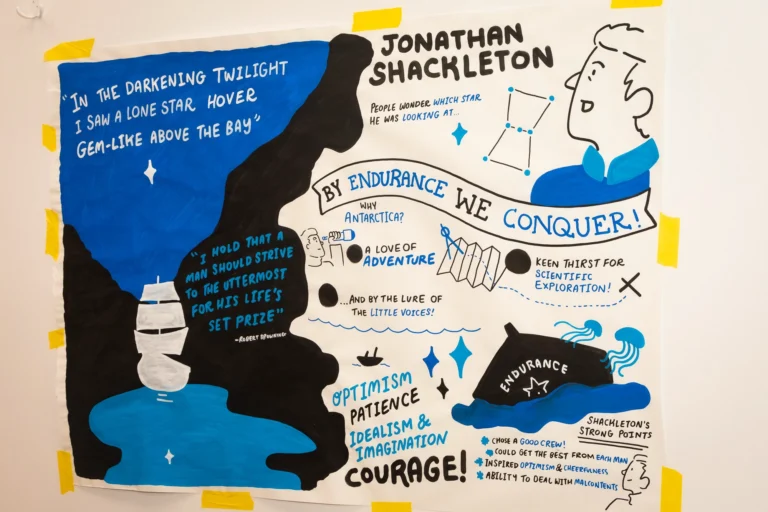 "IN THE DARKENING TWILIGHT
I SAW A LONE STAR HOVER
GEM-LIKE ABOVE THE BAY"
"I HOLD THAT A
MAN SHOULD STRIVE
TO THE UTTERMOST
FOR HIS LIFE'S
SET PRIZE"
-ROBERT BROWNING
JONATHAN
SHACKLETON
PEOPLE WONDER WHICH STAR
HE WAS LOOKING AT...
BY ENDURANCE WE CONQUER!
WHY
ANTARCTICA?
A LOVE OF
ADVENTURE
KEEN THIRST FOR
SCIENTIFIC
EXPLORATION!
...AND BY THE LURE OF
THE LITTLE VOICES!
OPTIMISM
PATIENCE
IDEALISM &
IMAGINATION
COURAGE!
ENDURANCE
SHACKLETON'S
STRONG POINTS
CHOSE A GOOD CREW!
COULD GET THE BEST FROM EACH MAN
INSPIRED OPTIMISM & CHEERFULNESS
ABILITY TO DEAL WITH MALCONTENTS